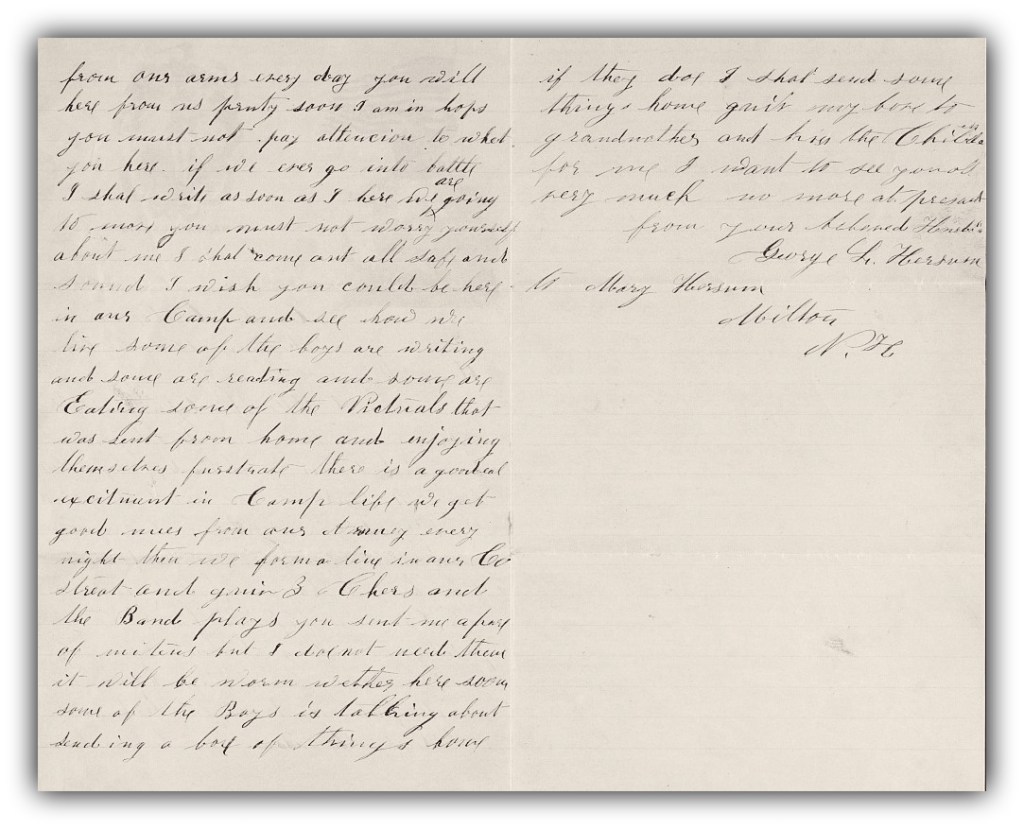 from our arms every day you will
here from us prenty soon I am in hops
you must not pay attencion to what
you here. if we ever go into battle
I shal write as soon as I here we are going
to move you must not worry yourself
about me I shal come out all safe and
sound I wish you could be here
in our Camp and see how we
live some of the boys are writing
and some are reading and some are
Eating some of the Victuals that
was sent from home and enjoying
themselves furstrate there is a goodeal
excitment in Camp life we get
good nues from our Armey every
night then we form a line in our Co
streat and guiv 3 Chers and
the Band plays you sent me a pare
of mitens but I doe not need them
it will be worm wether here soon
some of the Boys is talking about
sending a box of things home
if they doe I shal send some
things home guiv my love to
grandmother and kiss the Children
for me I want to see you all
very much no more at presant
from your beloved
George L. Hersum
to Mary Hersum
Milton
N. H